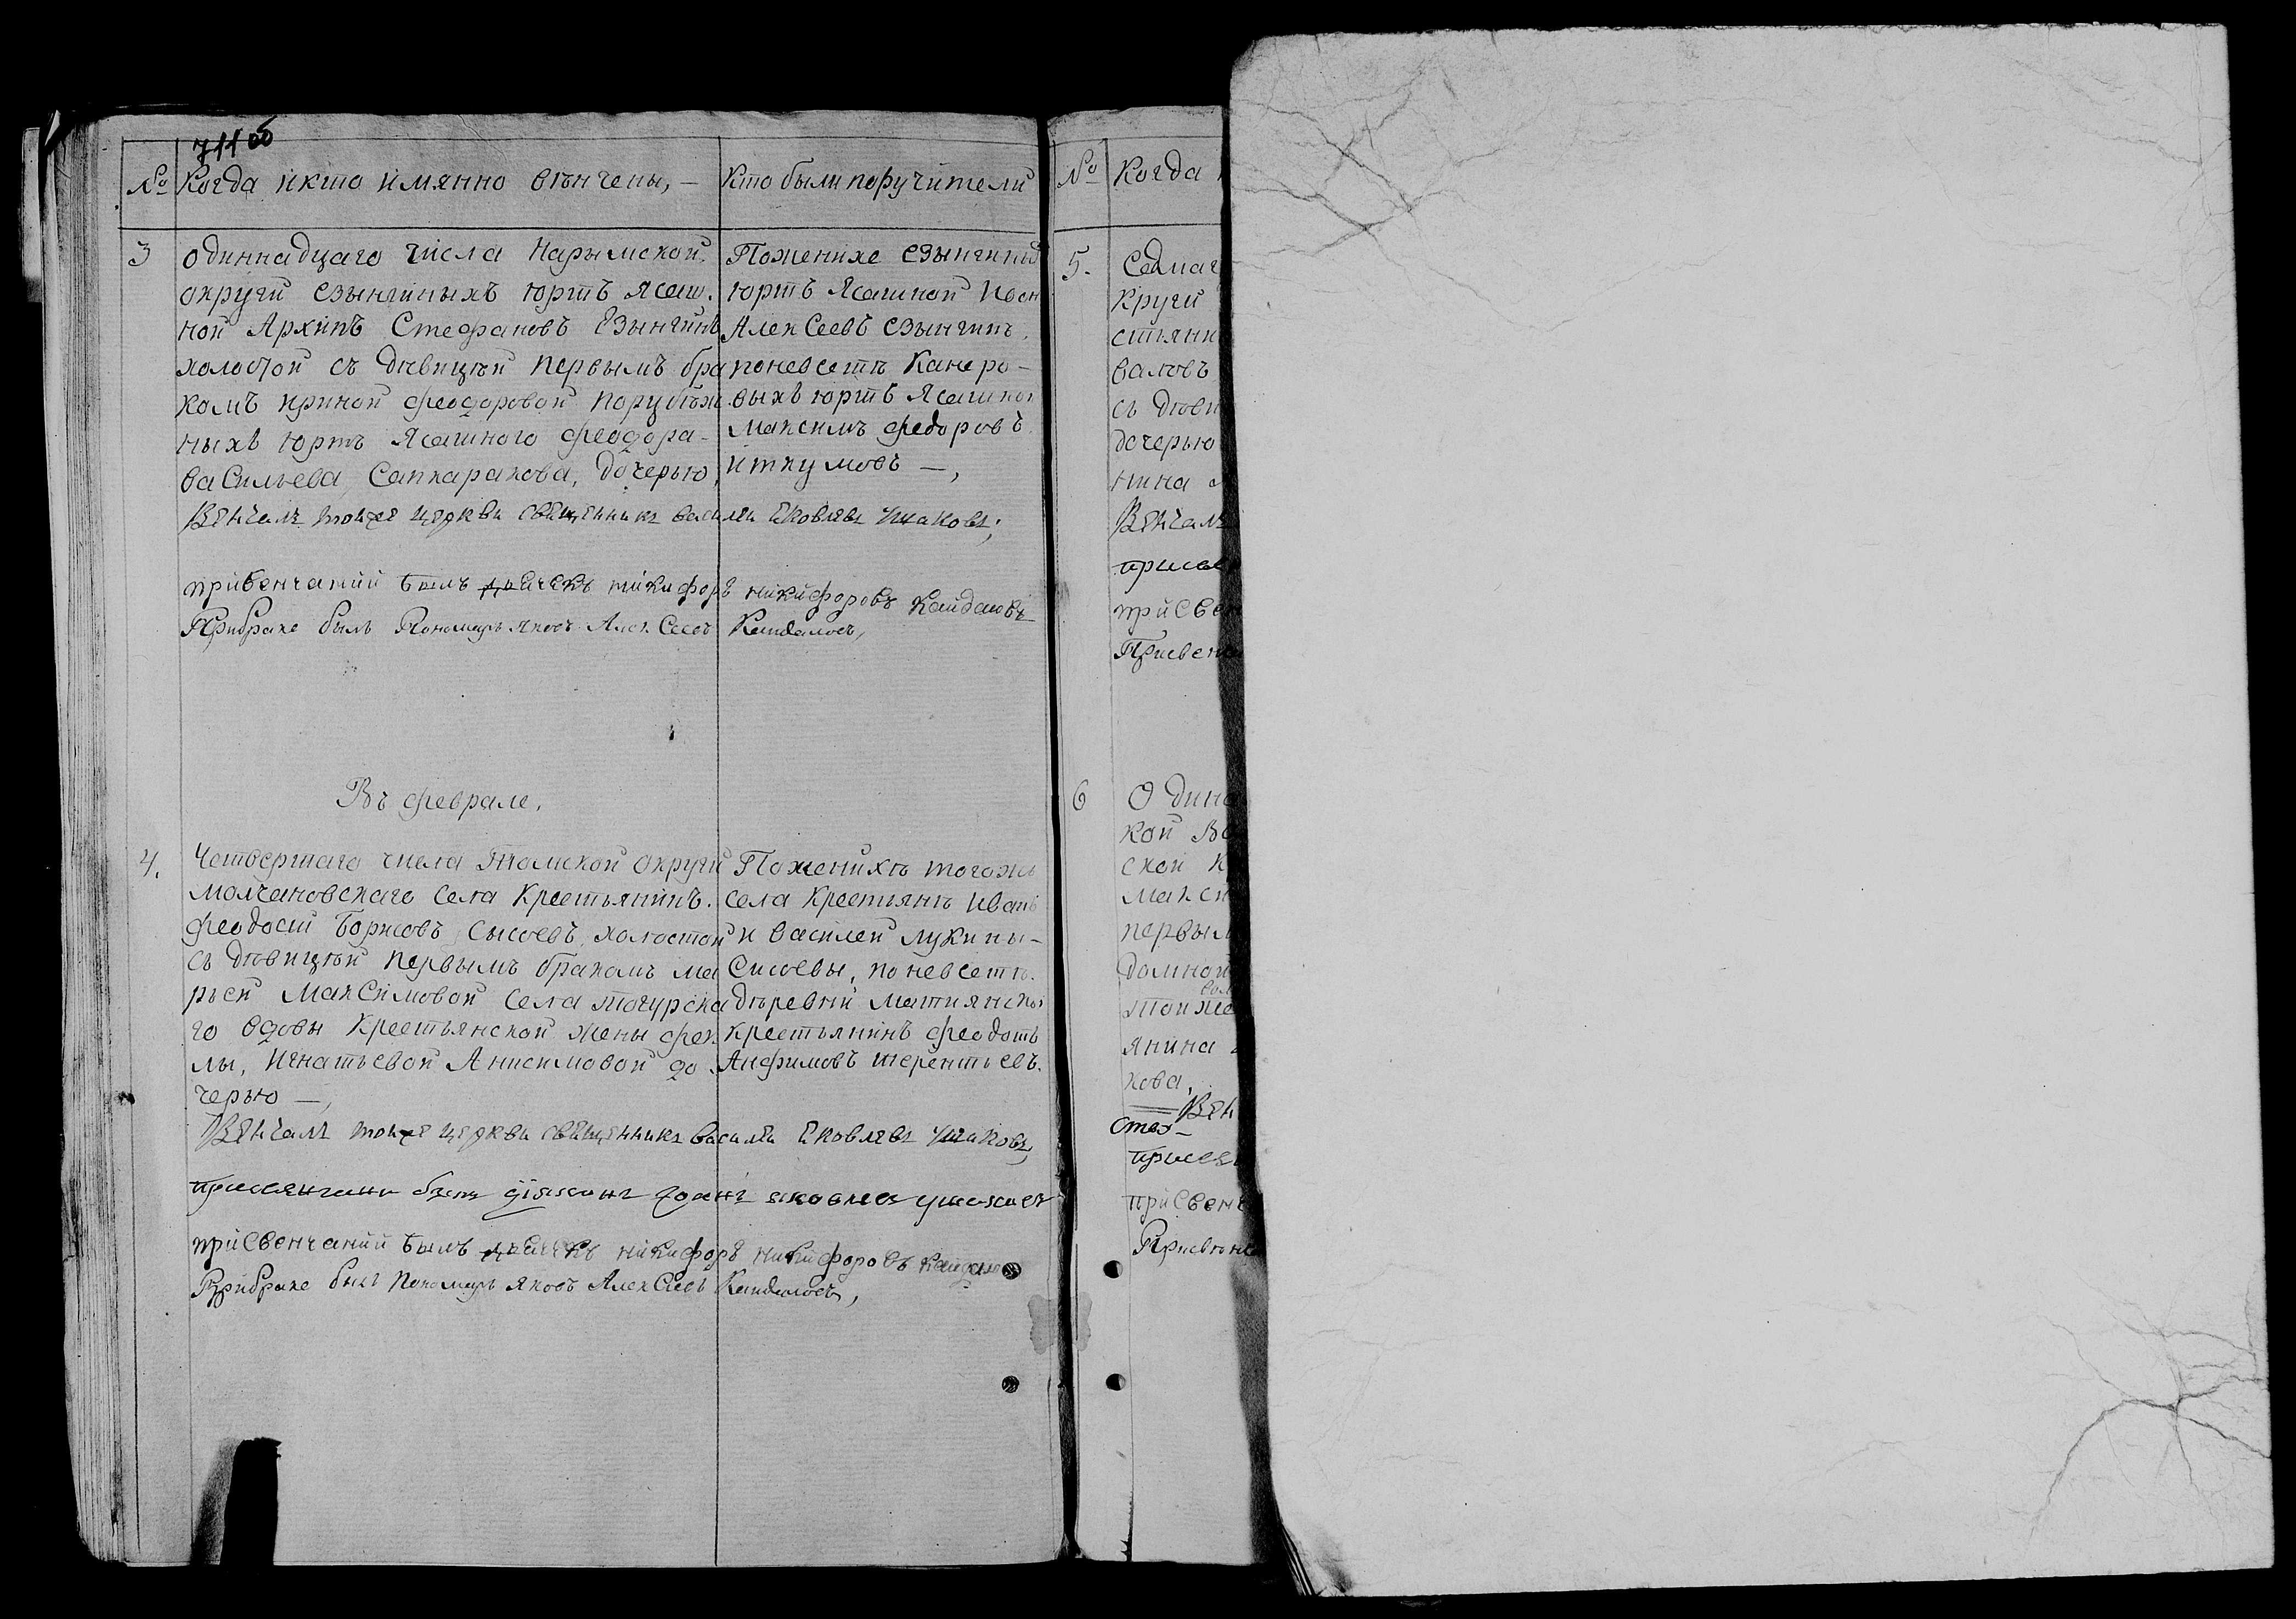 711об
№ Когда й кто имянно вѣнчены, — Кто были поручители
3 одиннадцаго числа Нарымской
округи езынгиныхъ юртъ ясаш.
ной Архипъ Стефановъ Езынгинъ
холостой съ дѣвицѣй первымъ бра
комъ ириной феодоровой
ныхъ юртъ Ясашного феодора-
васильева, Саппаракова, дочерью,
По женихе езынгиныхъ
юртъ Ясашной Иван
Алексеевъ езынгинъ,
по невсетѣ
выхъ юртъ Ясашной
Максимъ федоровъ
иткумовъ —,
Венчалъ тоя же церкви священникъ васили яковлевъ ушаковъ;
при венчаний былъ дьячекъ никифоръ никифоровъ Кайдаловъ
При браке былъ Пономарь яковъ Алексеевъ Кайдаловъ,
Въ феврале.
4. Четвертаго числа Томской округи
Молчановскаго села Крестьянинъ.
феодосий Борисовъ Сысоевъ холостой
съ дѣвицѣй первымъ бракомъ ма
рьей Максимовой села тогурска
го вдовы Крестьянской жены фек
лы, Игнатьевой Анисимовой до
черью —,
По женихѣ того же
села крестиянъ Иванъ
и василей лукины-
Сисоевы, по невсетѣ.
дѣревни
крестьянинъ феодотъ
Анфимовъ терентьевъ.
Венчалъ тоя же церкви священникъ василѣи яковлевъ ушаковъ,
при венчани былъ діяконъ яковлевъ ушаковъ
при свенчаний былъ дьячекъ никифоръ никифоровъ
При браке былъ пономарь яковъ Алексеевъ Кайдаловъ,
№ Когда
5. Седмаг
круги
стьяни
валовъ
съ дѣви
дочерью
нина
Венчалъ
при све
6 Один
кой
ской
Макси
первым
домной
тоиже
янина
кова,
Вен
при свенч